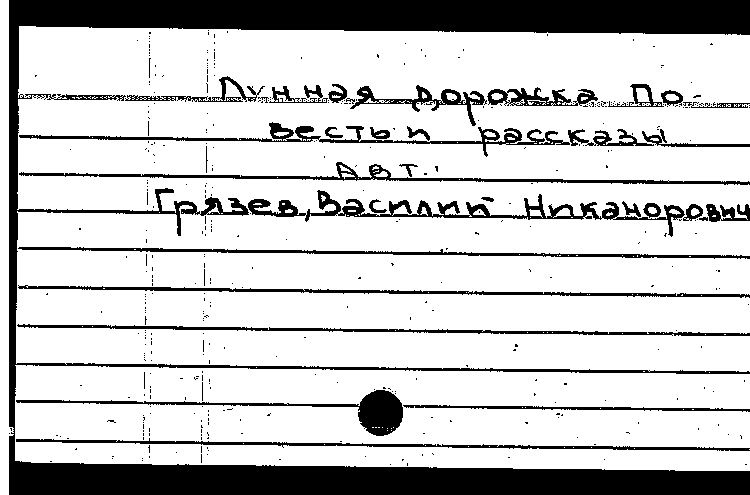 Лунная дорожка По-
весть и рассказы
Авт.:
Грязев, Василий Никанорович